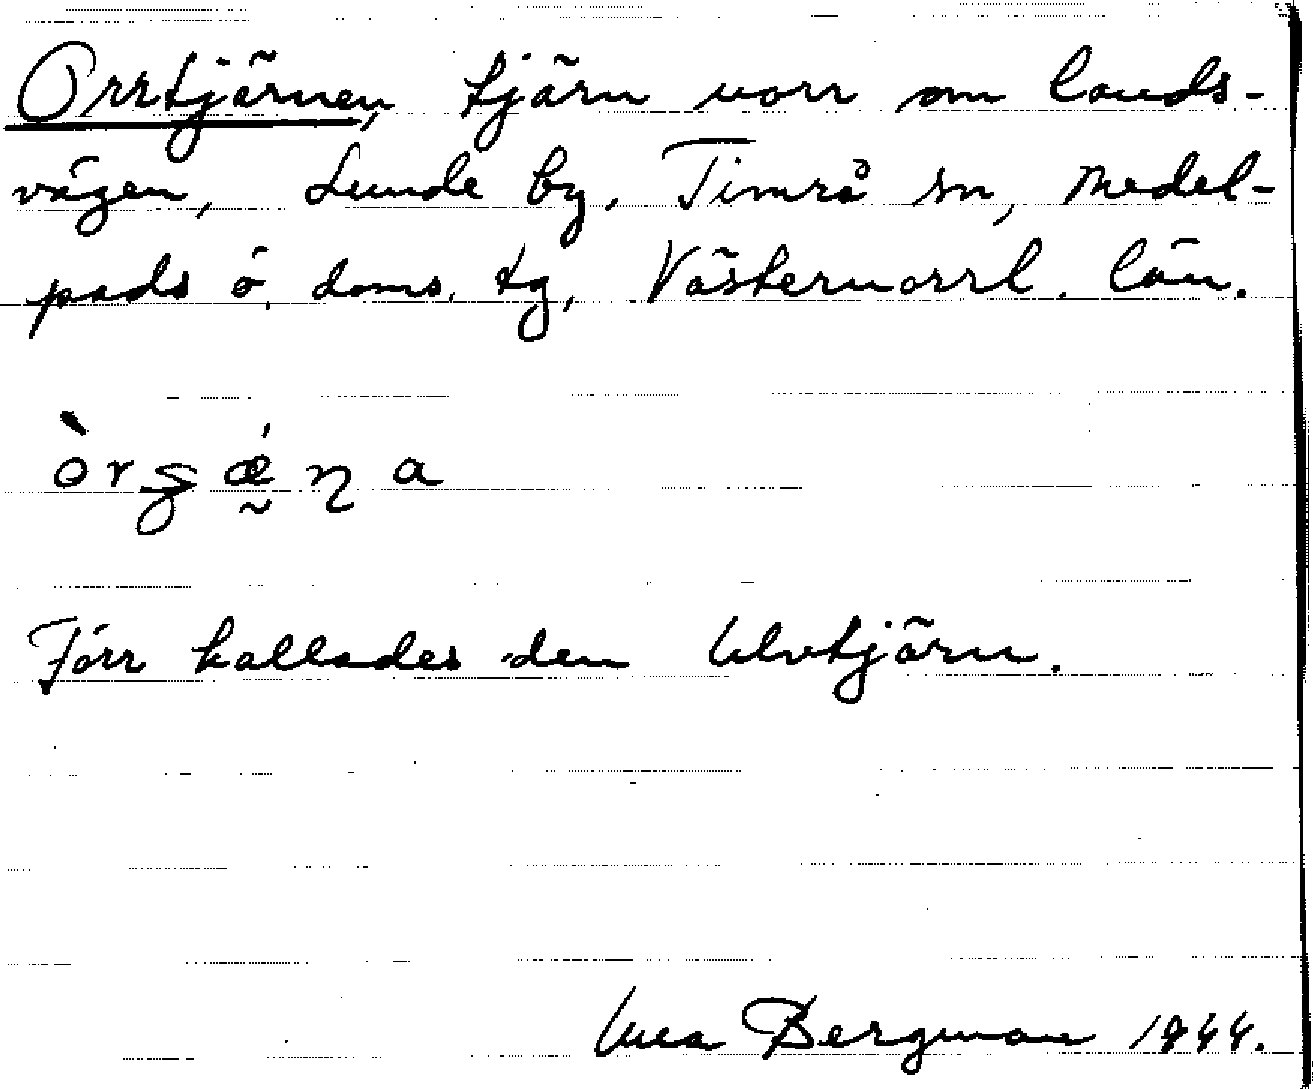 Orrtjärnen, tjärn norr om lands-
vägen, Lunde by, Timrå sn, Medel-
pads ö. doms. tg, Västernorrl. län.
Förr kallades den Ulvtjärn.
Bergman 1944.